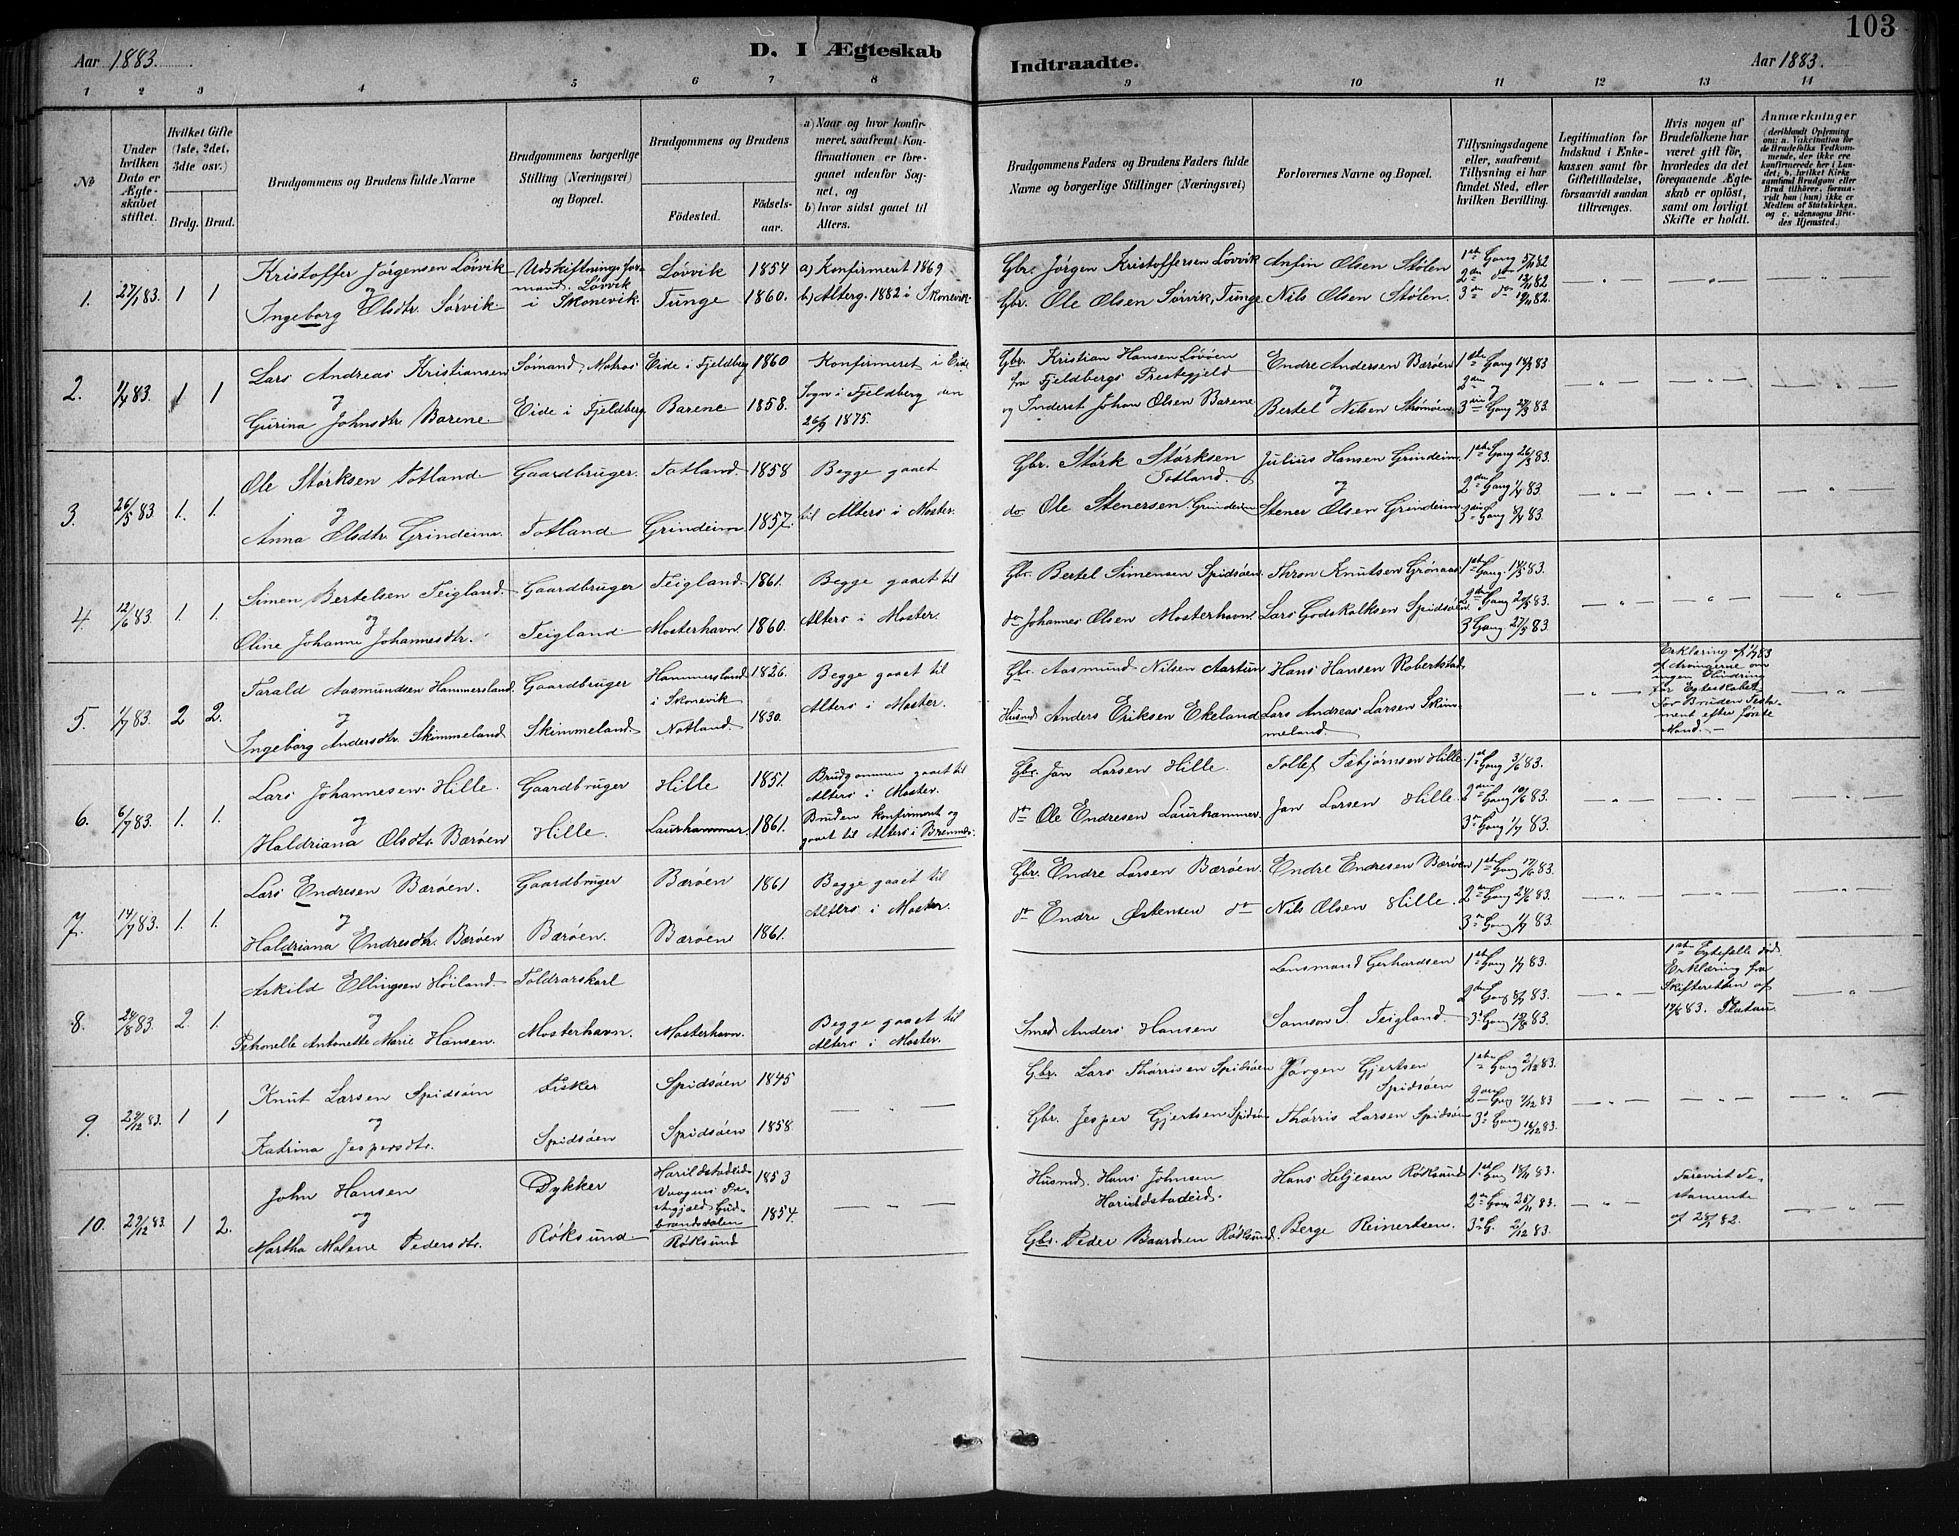 103
Aar 1883.
D. I Ægteskab
Indtraadte.
Aar 1883.
1 2 3 4 5 6 7 8 9 10 11 12 13 14
№
Under
hvilken
Dato er
Ægte-
skabet
stiftet.
Hvilket Gifte
(1ste, 2det,
3die osv.)
Brdg. Brud.
Brudgommens og Brudens fulde Navne
Brudgommens borgerlige
Stilling (Næringsvei)
og Bopæl.
Brudgommens og Brudens
Födested.
Födsels-
aar.
a) Naar og hvor konfir-
meret, saafremt Kon-
firmationen er fore-
gaaet udenfor Sog-
net, og
b) hvor sidst gaaet til
Alters.
Brudgommens Faders og Brudens Faders fulde
Navne og borgerlige Stillinger (Næringsvei)
Forlovernes Navne og Bopæl.
Tillysningsdagene
eller, saafremt
Tillysning ei har
fundet Sted, efter
hvilken Bevilling.
Legitimation for
Indskud i Enke-
kassen samt for
Giftetilladelse,
forsaavidt saadan
tiltrænges.
Hvis nogen af
Brudefolkene har
været gift før,
hvorledes da det
foregaaende Ægte-
skab er oplöst,
samt om lovligt
Skifte er holdt.
Anmærkninger
(deriblandt Oplysning
om: a. Vakcination for
de Brudefolks Vedkom-
mende, der ikke ere
konfirmerede her i Lan-
det; b. hvilket Kirke-
samfund Brudgom eller
Brud tilhörer, forsaa-
vidt han (hun) ikke er
Medlem af Statskirken,
og c. udensogns Bru-
des Hjemsted.)
1. 27/1 83. 1 1
Kristoffer Jörgensen Lövvik
og
Ingeborg Olsdtr. Sörvik
Udskiftningsfor-
mand. Lövvik
i Skonevik.
Lövvik 1854
Tunge 1860.
a) Konfirmerit 1869
b) Alterg. 1882 i Skonevik
Gbr. Jörgen Kristoffersen Lövvik
Gbr. Ole Olsen Sörvik, Tunge
Anfin Olsen Stölen
Nils Olsen Stölen.
1ste Gang 5/11 82
2den do 12/11 82
3die do 19/11 82.
2. 1/4 83. 1 1
Lars Andreas Kristiansen
og
Gurina Johnsdtr Barene
Sömand, Matros
Eide i Fjeldberg
Eide i Fjeldberg 1860
Barene 1858.
Konfirmeret i Eide
Sogn i Fjeldberg den
26/9 1875.
Gbr. Kristian Hansen Lövöen
fra Fjeldbergs Prestegjeld
og Inderst Johan Olsen Barene
Endre Andersen Bæröen
og
Bertel Nilsen Strömöen
3. 26/5 83 1. 1.
Ole Störksen Totland
og
Anna Olsdtr. Grindeim
Gaardbruger.
Totland
Totland 1858
Grindeim 1857.
Begge gaaet
til Alters i Moster.
Gbr. Störk Störksen
Totland.
do Ole Stenersen Grindeim
Julius Hansen Grindeim
og
Stener Olsen Grindeim
4. 12/6 83 1. 1.
Simen Bertelsen Teigland.
og
Oline Johanne Johannesdtr.
Gaardbruger
Teigland
Teigland. 1861.
Mosterhavn. 1860.
Begge gaaet til
Alters i Moster.
Gbr. Bertel Simensen Spidsöen
do Johannes Olsen Mosterhavn.
Thron Knutsen Grönaas
Lars Godskalksen Spidsöen
5. 1/7 83. 2 2.
Tarald Aasmundsen Hammersland.
og
Ingeborg Andersdtr. Skimmeland
Gaardbruger
Skimmeland.
Hammersland
i Skonevik 1826.
Notland. 1830.
Begge gaaet til
Alters i Moster.
Gbr. Aasmund Nilsen Aartun
Husmd Anders Eriksen Ekeland
Hans Hansen Robertstad
Lars Andreas Larsen Skim-
meland
Erklæring af 1/7 83
af Arvingerne om
ingen Hindring
for Egteskabet.
For Bruden Testa-
ment efter förste
Mand.
6. 6/7 83. 1. 1.
Lars Johannesen Hille.
og
Haldriana Olsdtr Bæröen
Gaardbruger
Hille.
Hille 1851.
Laurhammer 1861.
Brudgommen gaaet til
Alters i Moster.
Bruden konfirmert og
gaat til Alters i Bremnes.
Gbr. Jan Larsen Hille.
do Ole Endresen Laurhammer
Tollef Torbjörnsen Hille.
Jan Larsen Hille.
1ste Gang 3/6 83.
2den Gang 10/6 83.
3die Gang 1/7 83.
7. 14/7 83. 1. 1.
Lars Endresen Bæröen.
og
Haldriana Endresdtr. Bæröen
Gaardbruger
Bæröen.
Bæröen 1861
Bæröen 1861.
Begge gaaet til
Alters i Moster
Gbr. Endre Larsen Bæröen.
do Endre Östensen do
Endre Endresen Bæröen
Nils Olsen Hille.
1ste Gang 17/6 83.
2den Gang 24/6 83.
3die Gang 1/7 83.
8. 24/8 83. 2. 1.
Askild Ellingsen Höiland.
og
Petronelle Antonette Marie Hansen.
Toldrorskarl
Mosterhavn.
Mosterhavn.
Begge gaaet til
Alters i Moster.
Smed Anders Hansen
Lensmand Gerhardsen
Samson S. Teigland.
1ste Egtefælle död.
Erklæring fra
Skifteretten af
83. Flatau.
9. 29/12 83. 1 1
Knut Larsen Spidsöen
og
Katrina Jespersdtr.
Fisker
Spidsöen
Spidsöen 1845
Spidsöen 1858.
Gbr. Lars Thörrisen Spidsöen
Gbr. Jesper Gjertsen Spidsöen
Jörgen Gjertsen
Spidsöen
Thörris Larsen Spidsöen
1ste Gang 2/12 83.
2den Gang 9/12 83
3die Gang 16/12 83.
10. 29/12 83. 1 2.
John Hansen
og
Martha Malene Pedersdtr.
Dykker
Röksund
Harildstadeid
Vaagens Pre-
stegjæld Gud-
brandsdalen 1853
Röksund 1854.
Husmd. Hans Johnsen
Harildstadeid.
Gbr. Peder Baardsen Röksund.
Hans Heljesen Röksund
Berge Reinertsen.
1ste Gang 18/11 83.
2den Gang 25/11 83.
3die G. 2/12 83.